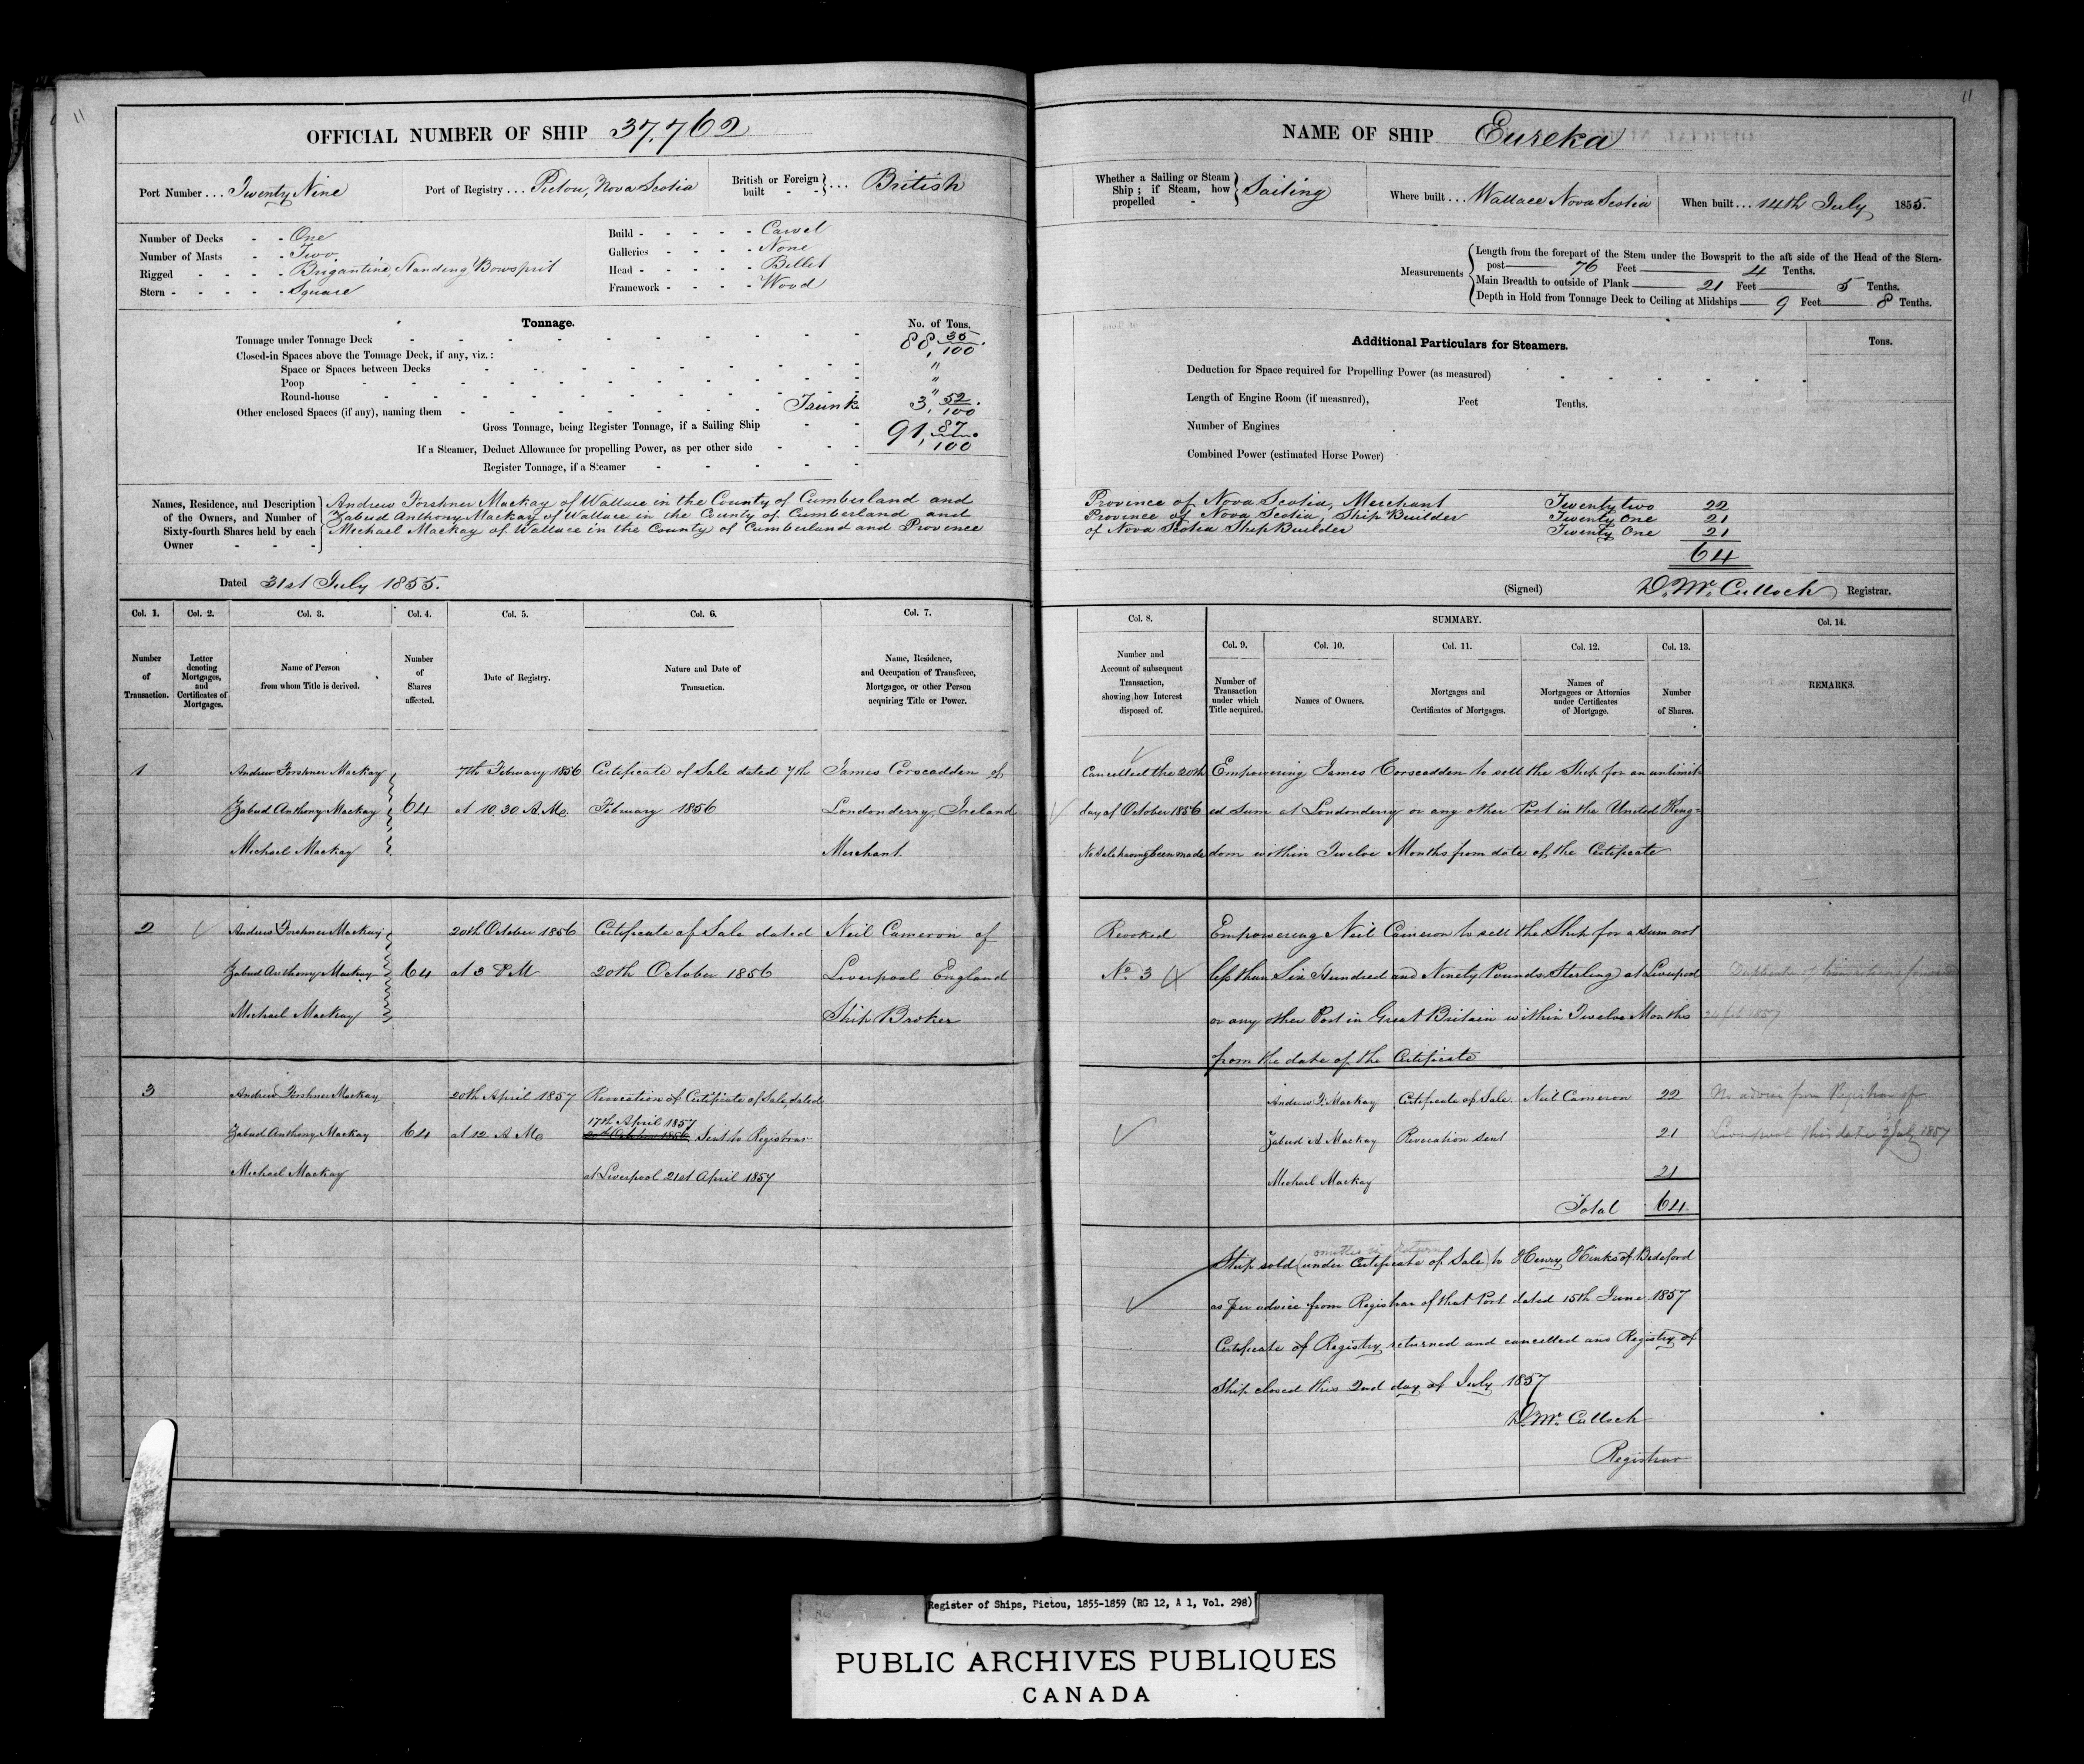 11
OFFICIAL NUMBER OF SHIP 37,762
Port Number ... Twenty Nine
Port of Registry ... Pictou, Nova Scotia
British or Foreign built - - } ... British
Number of Decks - - One
Number of Masts - - Two
Rigged - - - - Brigantine, Standing Bowsprit
Stern - - - - - Square
Build - - - - - Carvel
Galleries - - - - None
Head - - - - - Billet
Framework - - - - Wood
Tonnage.
No. of Tons.
Tonnage under Tonnage Deck 88, 35/100.
Closed-in Spaces above the Tonnage Deck, if any, viz.:
Space or Spaces between Decks "
Poop "
Round-house "
Other enclosed Spaces (if any), naming them Trunk 3, 52/100.
Gross Tonnage, being Register Tonnage, if a Sailing Ship 91, 87/100
If a Steamer, Deduct Allowance for propelling Power, as per other side
Register Tonnage, if a Steamer
Names, Residence, and Description of the Owners, and Number of Sixty-fourth Shares held by each Owner
Andrew Forshner Mackay of Wallace in the County of Cumberland and
Zabud Anthony Mackay of Wallace in the County of Cumberland and
Michael Mackay of Wallace in the County of Cumberland and Province
Dated 31st July 1855.
Col. 1. Col. 2. Col. 3. Col. 4. Col. 5. Col. 6. Col. 7.
Number of Transaction.
Letter denoting Mortgages, and Certificates of Mortgages.
Name of Person from whom Title is derived.
Number of Shares affected.
Date of Registry.
Nature and Date of Transaction.
Name, Residence, and Occupation of Transferee, Mortgagee, or other Person acquiring Title or Power.
1 Andrew Forshner Mackay 7th February 1856 Certificate of Sale dated 7th James Corscadden of
Zabud Anthony Mackay 64 at 10.30. A.M. February 1856 Londonderry, Ireland
Michael Mackay Merchant.
2 Andrew Forshner Mackay 20th October 1856 Certificate of Sale dated Neil Cameron of
Zabud Anthony Mackay 64 at 3 P M 20th October 1856 Liverpool England
Michael Mackay Ship Broker
3 Andrew Forshner Mackay 20th April 1857 Revocation of Certificate of Sale, dated
17th April 1857
Zabud Anthony Mackay 64 at 12 A M. 20th October 1856, Sent to Registrar
Michael Mackay at Liverpool 21st April 1857
11
NAME OF SHIP Eureka
Whether a Sailing or Steam Ship; if Steam, how propelled - } Sailing
Where built ... Wallace Nova Scotia
When built ... 14th July 1855.
Measurements
Length from the forepart of the Stem under the Bowsprit to the aft side of the Head of the Stern-
post 76 Feet 4 Tenths.
Main Breadth to outside of Plank 21 Feet 5 Tenths.
Depth in Hold from Tonnage Deck to Ceiling at Midships 9 Feet 8 Tenths.
Additional Particulars for Steamers.
Tons.
Deduction for Space required for Propelling Power (as measured)
Length of Engine Room (if measured), Feet Tenths.
Number of Engines
Combined Power (estimated Horse Power)
Province of Nova Scotia, Merchant Twenty two 22
Province of Nova Scotia, Ship Builder Twenty One 21
of Nova Scotia Ship Builder Twenty One 21
64
(Signed) D. Mc. Culloch Registrar.
Col. 8. SUMMARY. Col. 14.
Col. 9. Col. 10. Col. 11. Col. 12. Col. 13.
Number and Account of subsequent Transaction, showing how Interest disposed of.
Number of Transaction under which Title acquired.
Names of Owners.
Mortgages and Certificates of Mortgages.
Names of Mortgagees or Attornies under Certificates of Mortgage.
Number of Shares.
REMARKS.
Cancelled the 20th Empowering James Corscadden to sell the Ship for an unlimit-
day of October 1856 ed Sum at Londonderry or any other Port in the United King-
No Sale having been made dom within Twelve Months from date of the Certificate
Revoked Empowering Neil Cameron to sell the Ship for a sum not
No 3 less than Six Hundred and Ninety Pounds Sterling at Liverpool
or any other Port in Great Britain within Twelve Months
from the date of the Certificate
Andrew F. Mackay Certificate of Sale Neil Cameron 22 No advice from Registrar of
Zabud A Mackay Revocation sent 21 Liverpool this date 2 July 1857
Michael Mackay 21
Total 64
Ship sold (under Certificate of Sale) to Henry Hinks of Bideford
as per advice from Registrar of that Port dated 15th June 1857
Certificate of Registry returned and cancelled and Registry of
Ship closed this 2nd day of July 1857
D. Mc. Culloch
Registrar
Register of Ships, Pictou, 1855-1859 (RG 12, A 1, Vol. 298)
PUBLIC ARCHIVES PUBLIQUES
CANADA